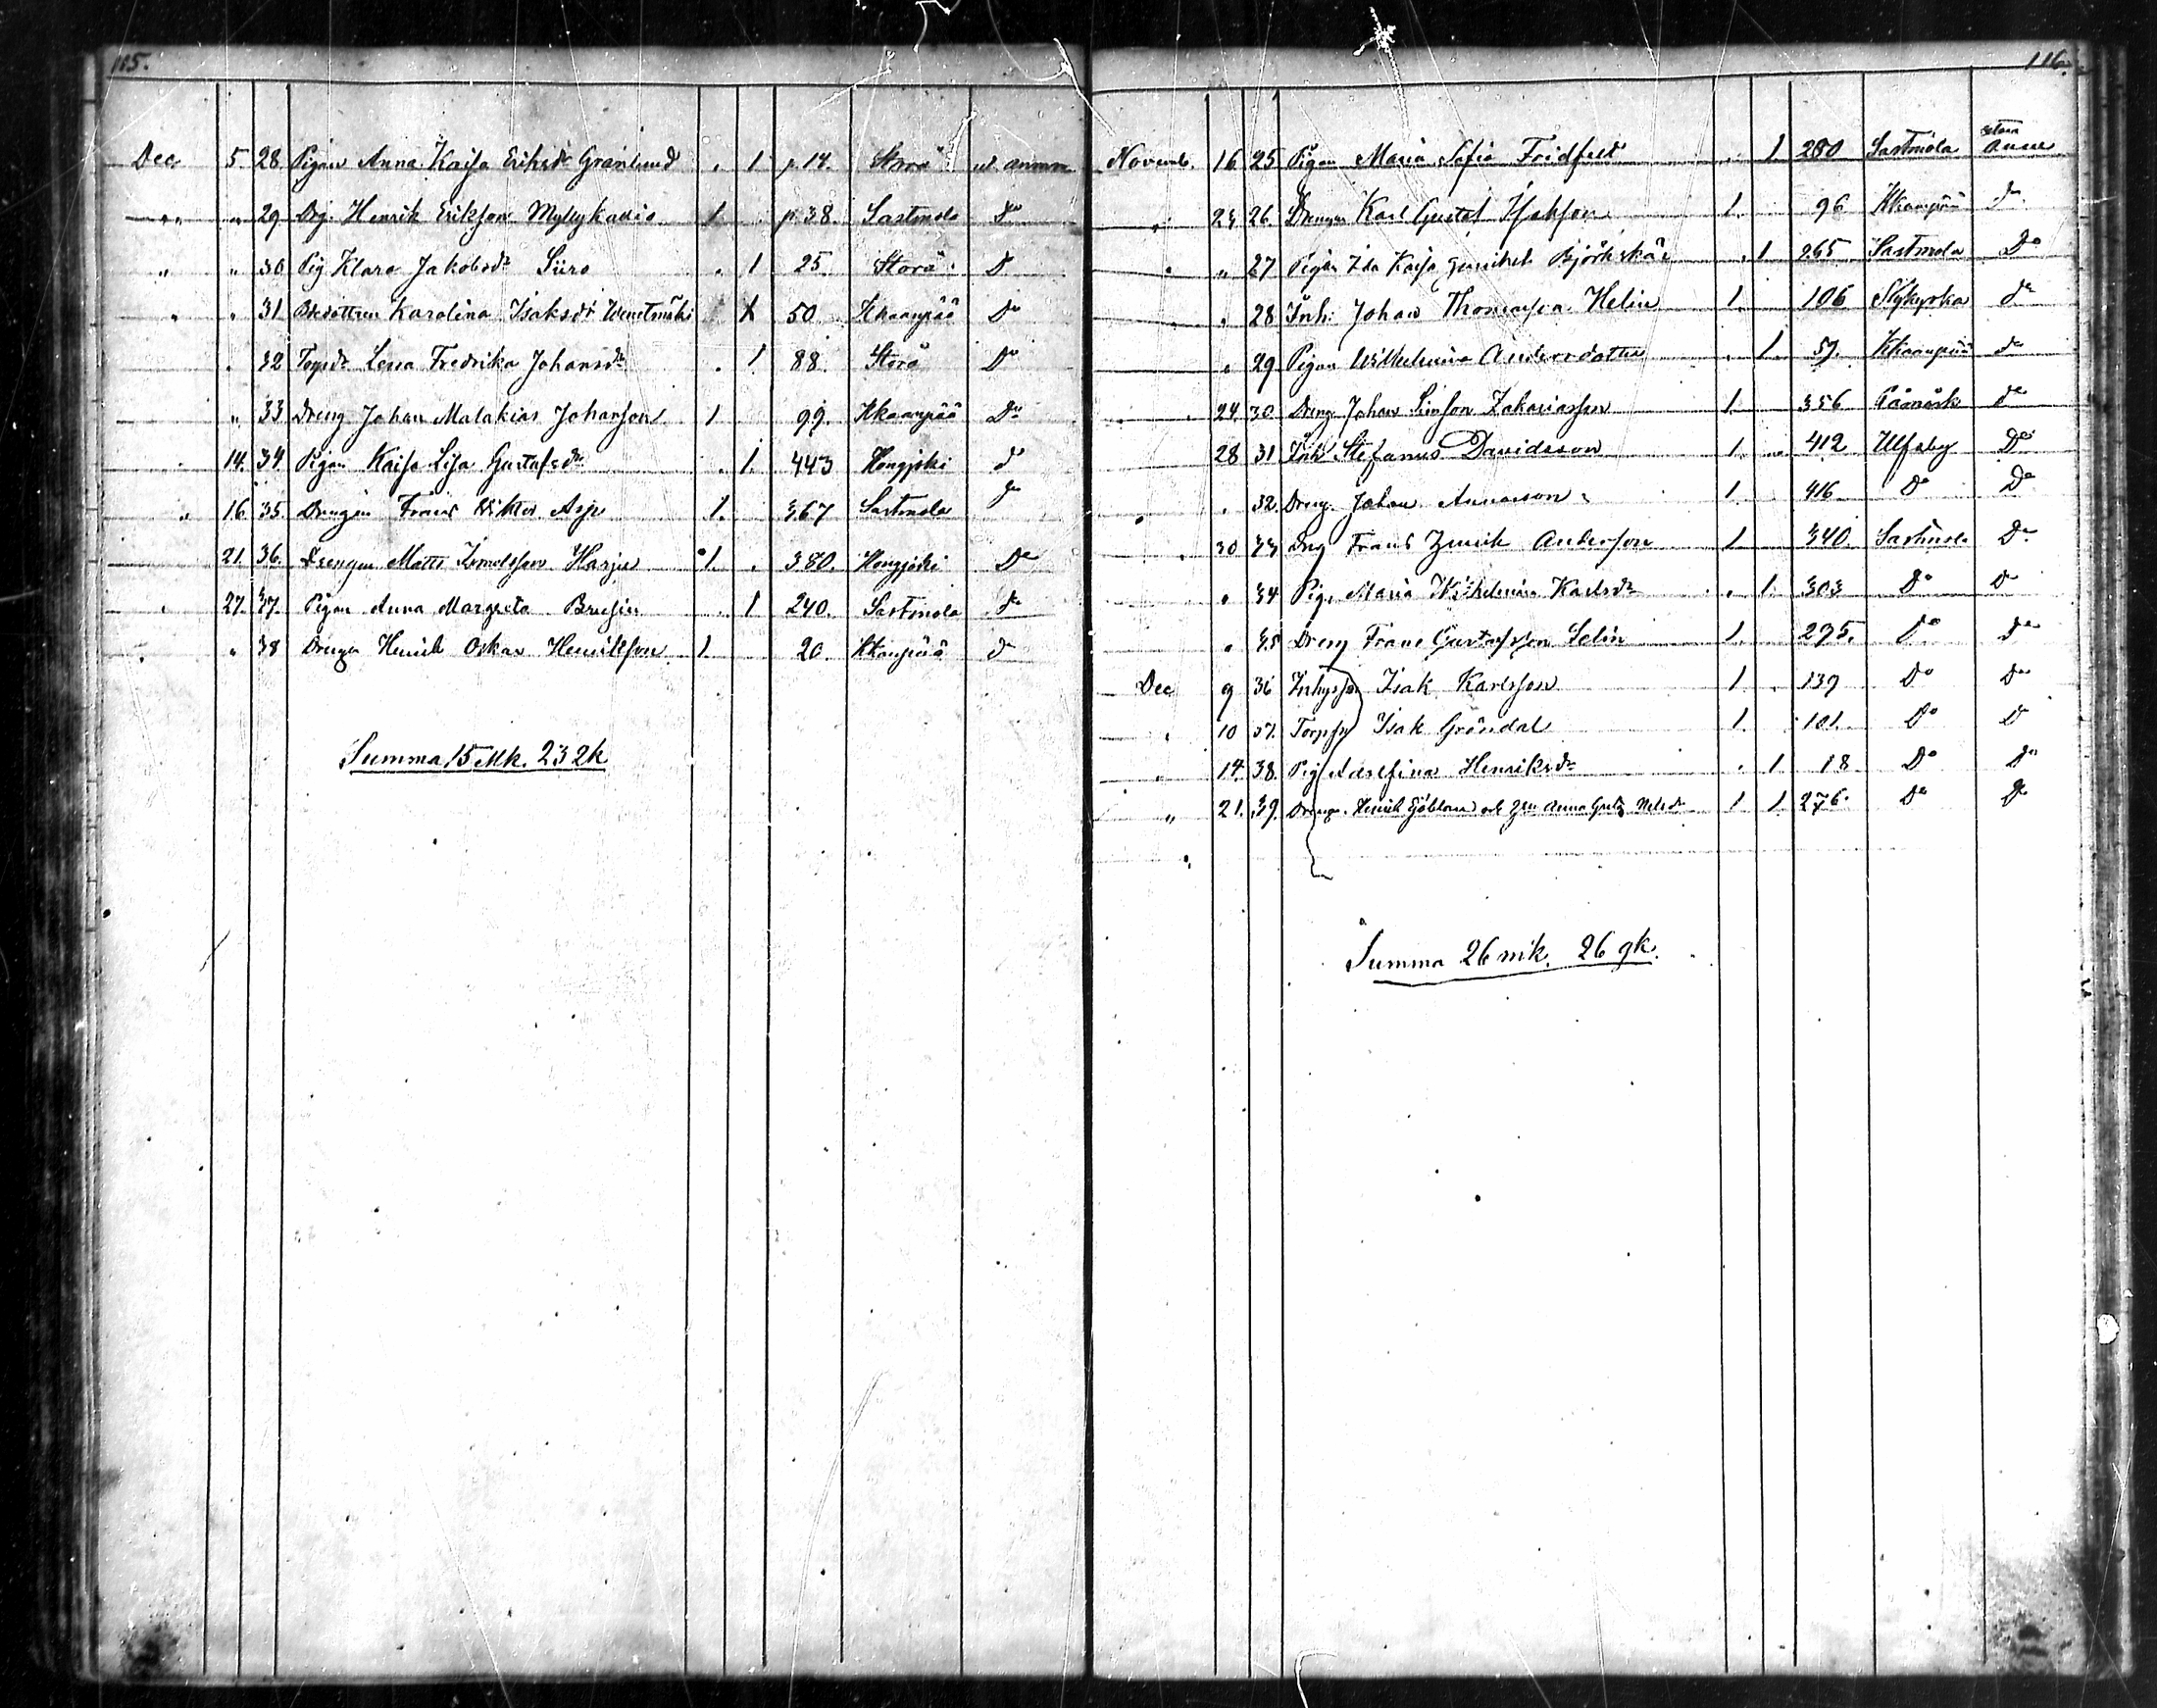 115.
Dec 5. 28. Pigan Anna Kaisa Eriksdr Granlund . 1 p.14. Storå utan anmn
" " 29 Drg. Henrik Erikson Myllykallio 1 . p.38. Sastmola Do
" " 30 Pig Klara Jakobsdr Siiro . 1 25. Storå D
" " 31 Karolina Isaksdr 1 50 Kkaanpää Do
. 32 Torpdr Lena Fredrika Johansdr . 1 88. Storå Do
" 33 Dreng Johan Malakias Johanson 1 99. Kkaanpää Do
14. 34 Pigan Kaisa Lisa Gustafsdr . 1. 443 Hongojoki do
" 16 35. Drengen Frans Wiktor Asp 1. 367 Sastmola do
21. 36. Drengen Matts Harju 1. . 380. Hongojoki Do
27. 37. Pigan Anna Margreta Brusiin . 1 240. Sastmola do
" 38 Drengen Henrik Oskar Henrikson 1. 20. Kkanpää do
Summa 15 Mk. 23 2k
116.
Novemb. 16 25 Pigan Maria Sofia Fridfelt . 1. 280 Sastmola utan anm
" 23 26. Drengen Karl Gustaf Isakson 1. 96 Kkaanpää do
" " 27 Pigan Ida Kaisa Björkskär . 1 265 Sastmola Do
" 28 Inh. Johan Thomasson Helin 1. 106 do
" 29 Pigan Wilhelmina Andersdotter . 1. 57. Kkaanpää do
24. 30. Dreng Johan Simson Zakariasson 1. 356 do
28 31 Inh Stefanus Davidsson 1. 412 Ulfsby Do
. 32. Dreng. Johan 1. 416 Do Do
30 33 Drg Frans Henrik Anderson 1. 340. Sastmola Do
" 34 Pig. Maria Wilhelmina Karlsdr . 1. 303 Do D
" 35 Dreng Frans Gustafsson Selin 1. 295. Do Do
Dec 9 36 Inhyss Isak Karlsson 1. . 139 Do Do
" 10 37. Torps Isak Gröndal 1. 101. Do D
" 14. 38. Pig Josefina Henriksdr . 1 18 Do Do
" 21. 39. Dreng. Henrik och Anna Greta Nilsdr 1 1 276. Do Do
Summa 26 mk. 26 qk.